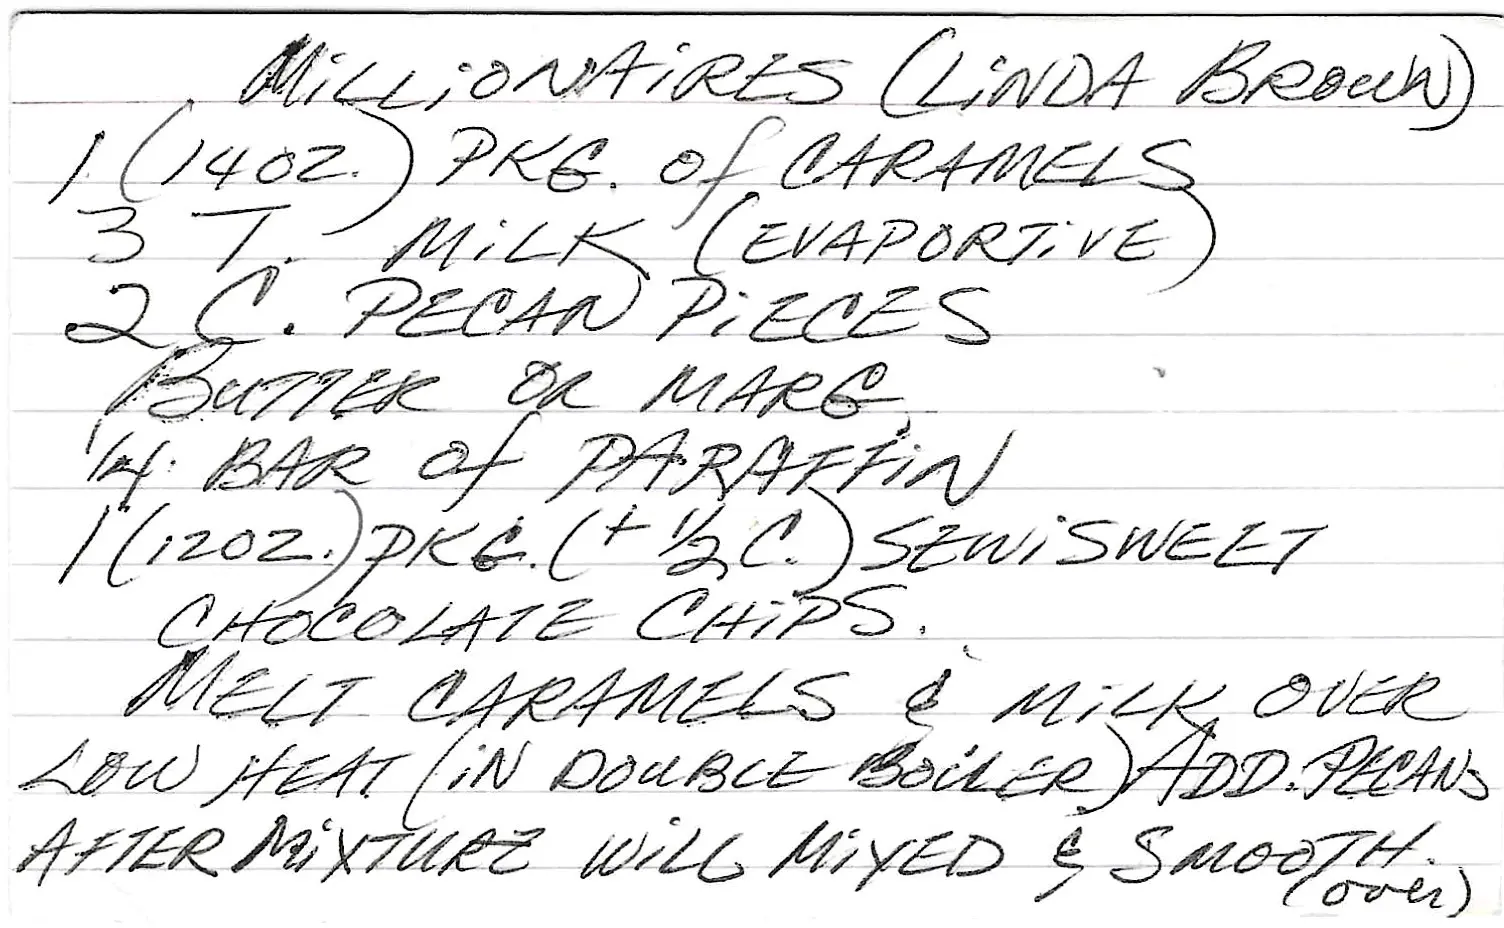 MiLLiONAiRES (LiNDA BROWN)
1 (14 OZ.) PKG. of CARAMELS
3 T. MiLK (EVAPORTiVE)
2 C. PECAN PiECES
BUTTER OR MARG.
1/4 BAR of PARAFFiN
1 (12 OZ.) PKG. (+ 1/2 C.) SEMiSWEET
CHOCOLATE CHiPS.
MELT CARAMELS & MiLK OVER
LOW HEAT (iN DOUBLE BOiLER) ADD PECANS
AFTER MiXTURE WiLL MiXED & SMOOTH.
(over)